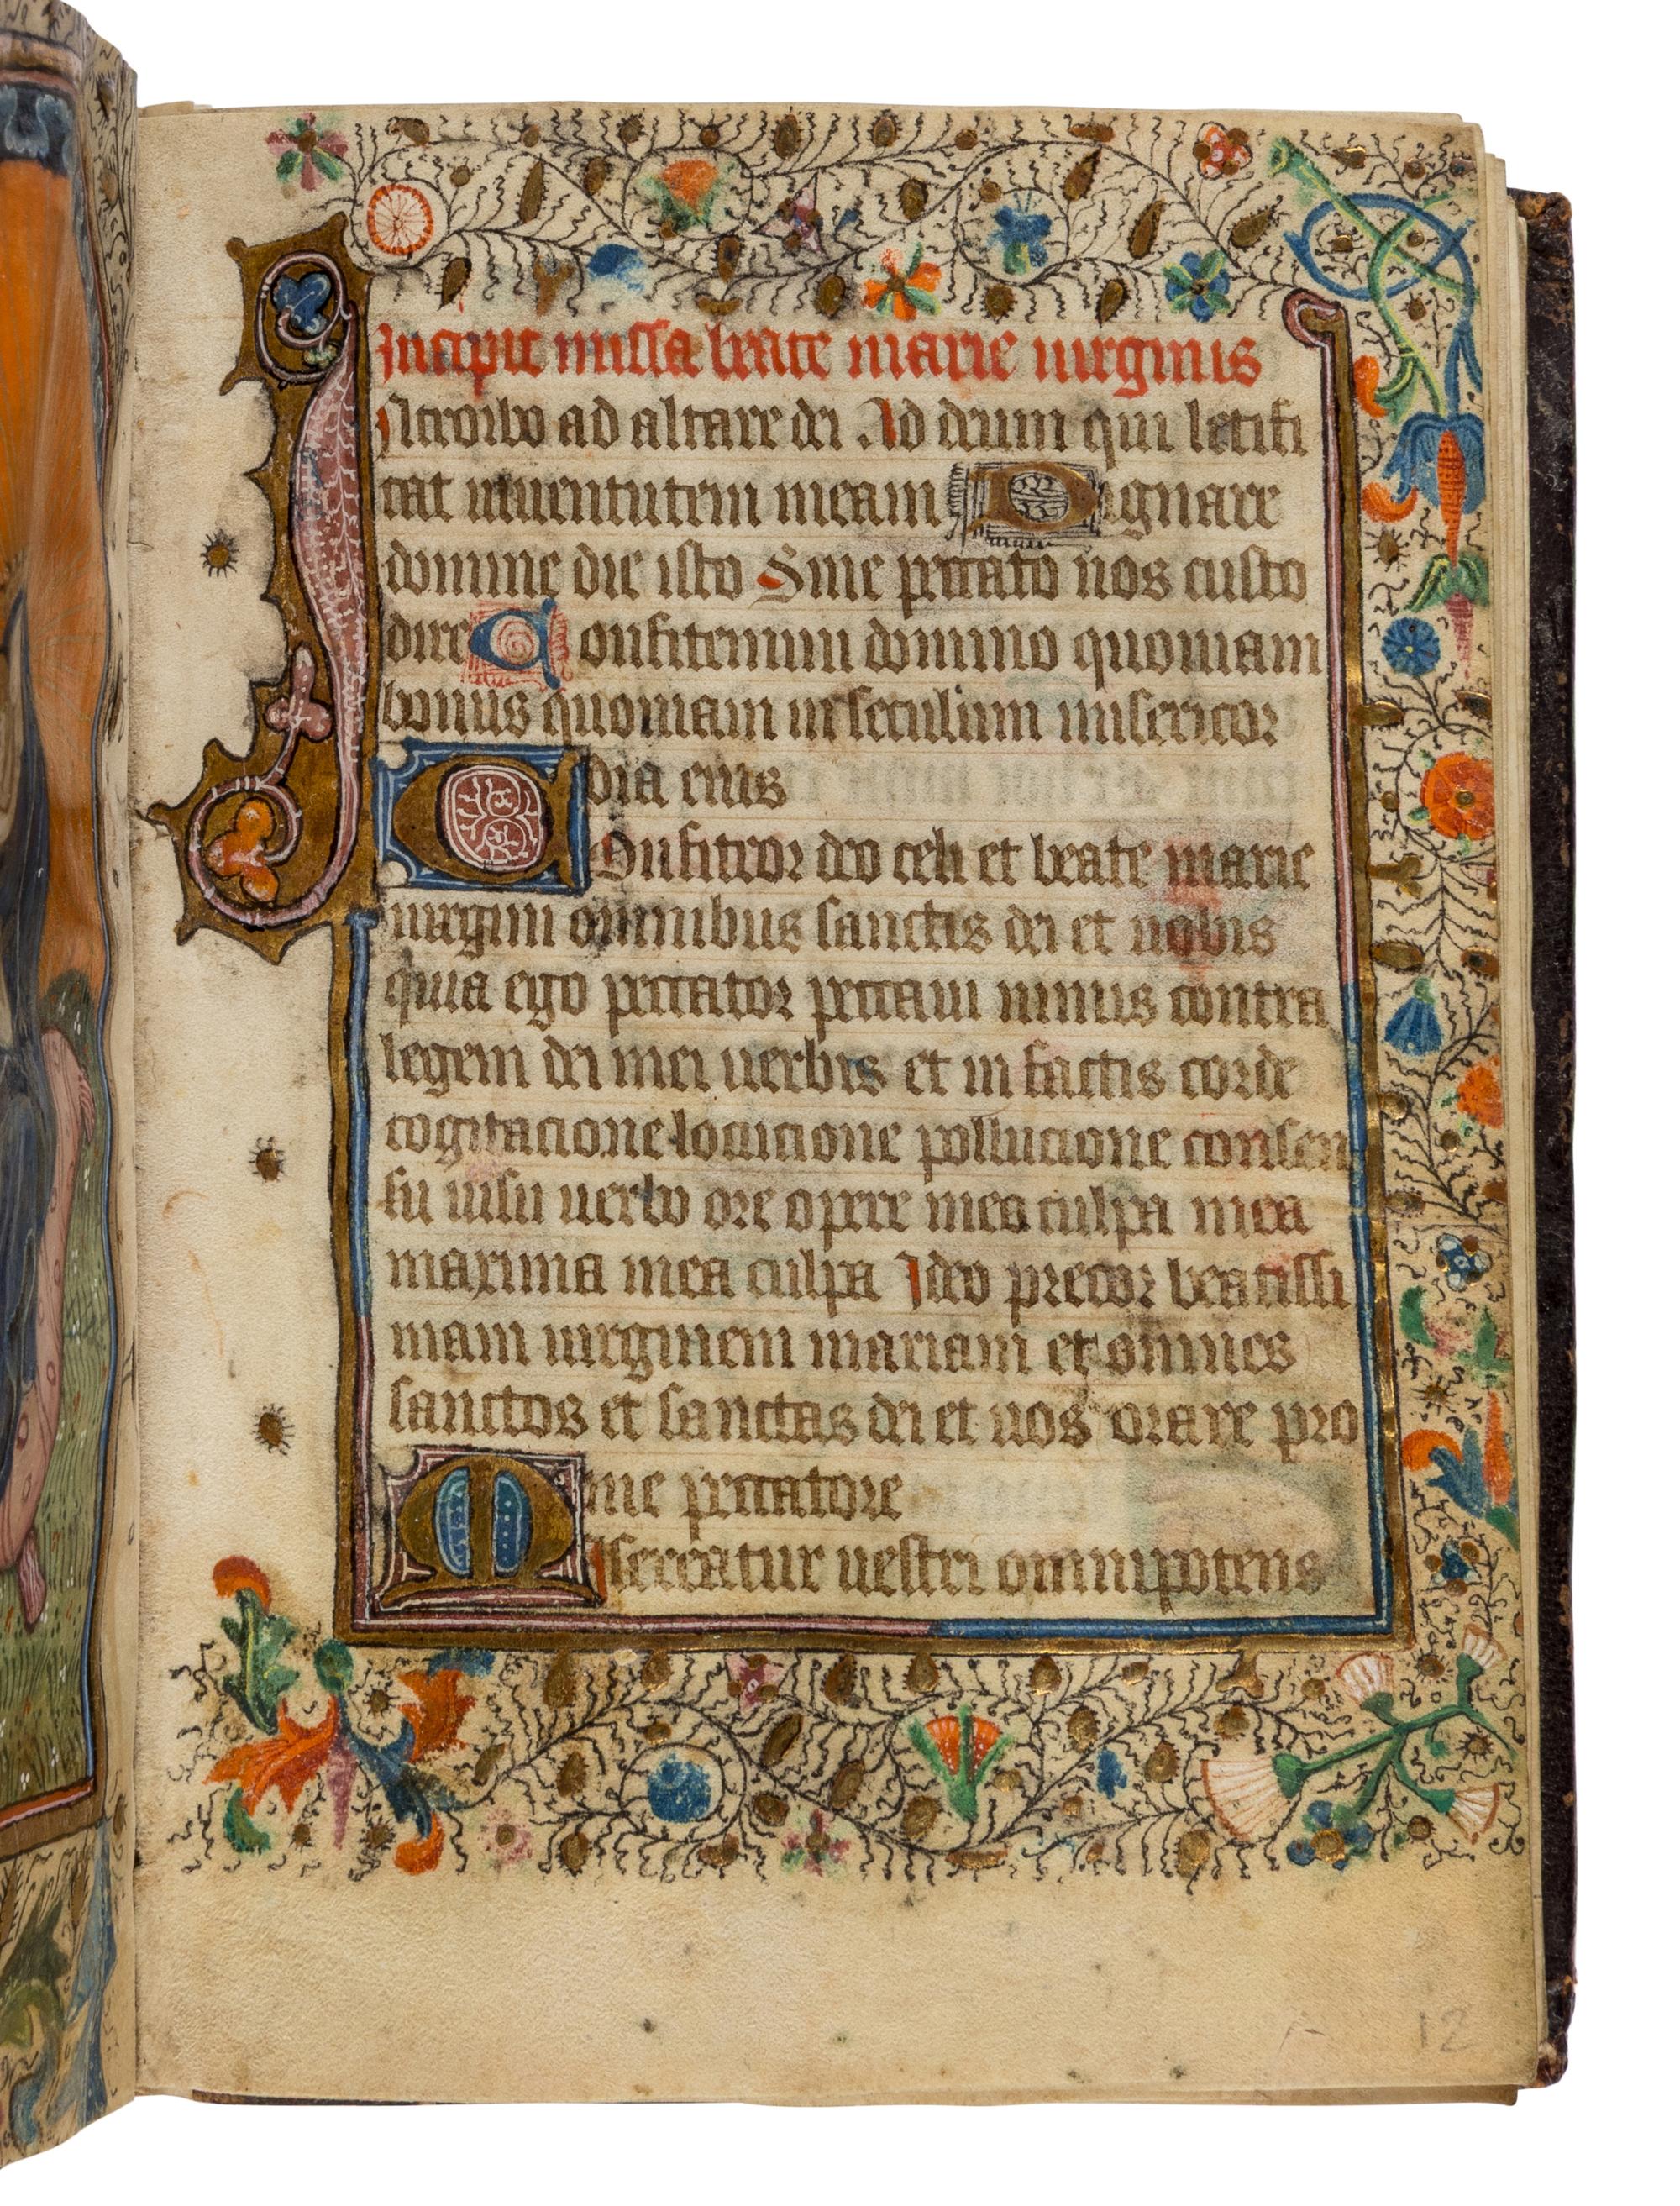 Incipit missa beate marie uirginis
Introibo ad altare dei Ad deum qui letifi
cat iuuentutem meam Dignare
domine die isto Sine peccato nos custo
dire Confitemini domino quoniam
bonus quoniam in seculum misericor
dia eius
Confiteor deo celi et beate marie
uirgini omnibus sanctis dei et uobis
quia ego peccator peccaui nimis contra
legem dei mei uerbis et in factis corde
cogitacione locucione pollucione consen
su uisu uerbo ore opere mea culpa mea
maxima mea culpa Ideo precor beatissi
mam uirginem mariam et omnes
sanctos et sanctas dei et uos orare pro
me peccatore
Misereatur uestri omnipotens
12